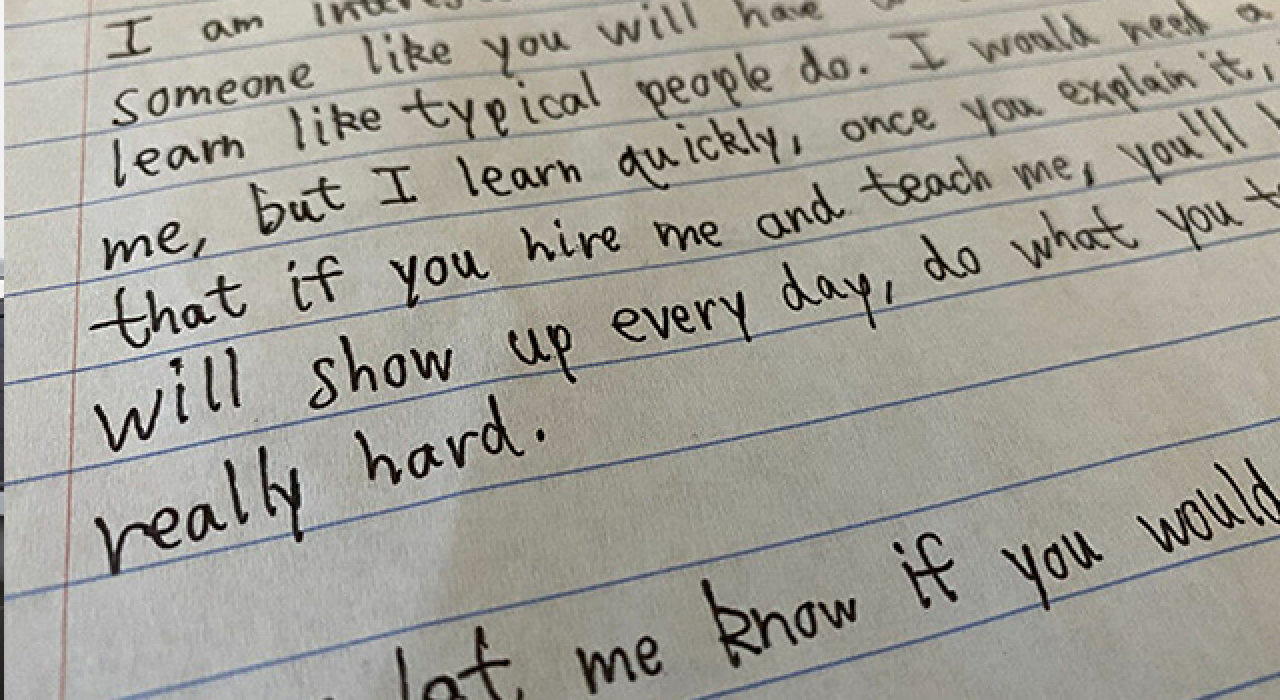 I am
someone like you will have
learn like typical people do. I would need a
me, but I learn quickly, once you explain it,
that if you hire me and teach me, you'll
will show up every day, do what you
really hard.
let me know if you would